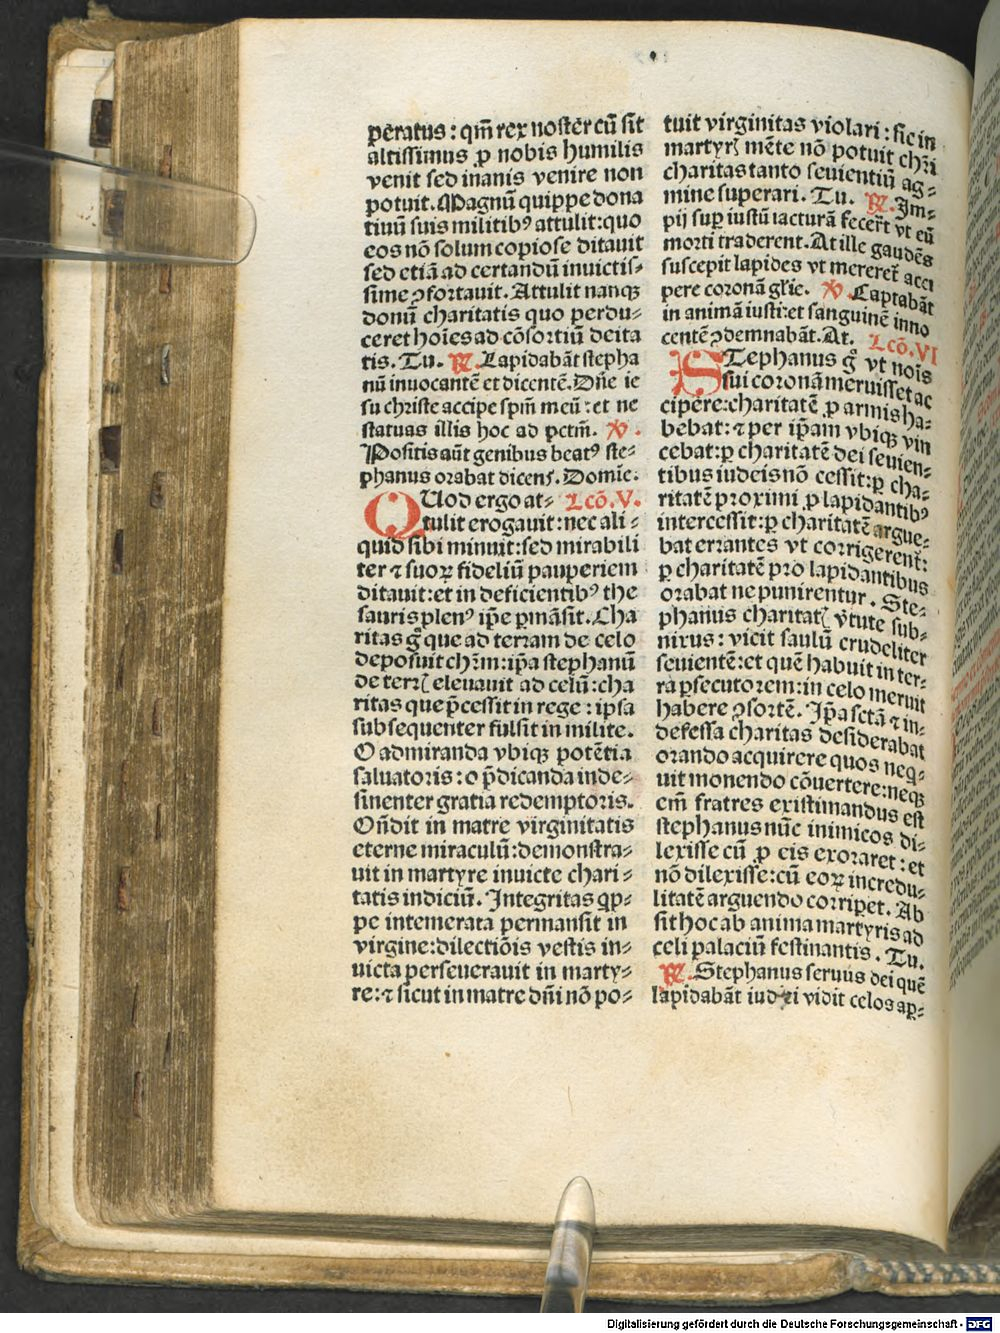 peratus : qm̄ rex noster cū sit
altissimus ꝓ nobis humilis
venit sed inanis venire non
potuit. Magnū quippe dona
tiuū suis militibꝰ attulit: quo
eos nō solum copiose ditauit
sed etiā ad certandū inuictis⸗
sime ꝯfortauit. Attulit nanqꝫ
donū charitatis quo perdu⸗
ceret hoīes ad cōsortiū deita
tis. Tu. ℟. Lapidabāt stepha
nū inuocantē et dicentē. Dn̄e ie
su christe accipe spm̄ meū : et ne
statuas illis hoc ad pctm̄. ℣.
Positis aūt genibus beatꝰ ste⸗
phanus orabat dicens. Domīe.
QUod ergo at⸗ Lcō. V.
tulit erogauit: nec ali⸗
quid sibi minuit: sed mirabili
ter ⁊ suoꝝ fideliū pauperiem
ditauit: et in deficientibꝰ the
sauris plenꝰ ip̄e ꝑmāsit. Cha
ritas g̊ que ad terram de celo
deposuit chr̄m: ip̄a stephanū
de terrꝭ eleuauit ad celū: cha
ritas que p̄cessit in rege : ipsa
subsequenter fulsit in milite.
O admiranda vbiqꝫ potētia
saluatoris: o p̄dicanda inde⸗
sinenter gratia redemptoris.
Ōndit in matre virginitatis
eterne miraculū: demonstra⸗
uit in martyre inuicte chari⸗
tatis indiciū. Integritas qꝓ⸗
pe intemerata permansit in
virgine: dilectiōis vestis in⸗
uicta perseuerauit in marty⸗
re: ⁊ sicut in matre dn̄i nō po⸗
tuit virginitas violari : sic in
martyrꝭ mēte nō potuit chr̄i
charitas tanto seuientiū ag⸗
mine superari. Tu. ℟. Im⸗
pij suꝑ iustū iacturā fecer̄t vt eū
morti traderent. At ille gaudēs
suscepit lapides vt mereret̄ acci
pere coronā gl̄ie. ℣. Captabāt
in animā iusti: et sanguinē inno
centē ꝯdemnabāt. At. Lcō. VI
STephanus g̊ vt nois
sui coronā meruisset ac
cipere: charitatē ꝓ armis ha⸗
bebat: ⁊ per ip̄am vbiqꝫ vin
cebat: ꝑ charitatē dei seuien⸗
tibus iudeis nō cessit: ꝑ cha⸗
ritatē proximi ꝓ lapidantibꝰ
intercessit: ꝑ charitatē argue⸗
bat errantes vt corrigerent̄:
ꝑ charitatē pro lapidantibus
orabat ne punirentur. Ste⸗
phanus charitatꝭ v̄tute sub⸗
nixus : vicit saulū crudeliter
seuientē: et quē habuit in ter⸗
ra ꝑsecutorem: in celo meruit
habere ꝯsortē. Ip̄a sctā ⁊ in⸗
defessa charitas desiderabat
orando acquirere quos neq⸗
uit monendo cōuertere: neqꝫ
em̄ fratres existimandus est
stephanus nūc inimicos di⸗
lexisse cū ꝓ eis exoraret : et
nō dilexisse: cū eoꝝ incredu⸗
litatē arguendo corripet. Ab
sit hoc ab anima martyris ad
celi palaciū festinantis. Tu.
℟. Stephanus seruus dei quē
lapidabāt iudei vidit celos aꝑ⸗
Digitalisierung gefördert durch die Deutsche Forschungsgemeinschaft - DFG